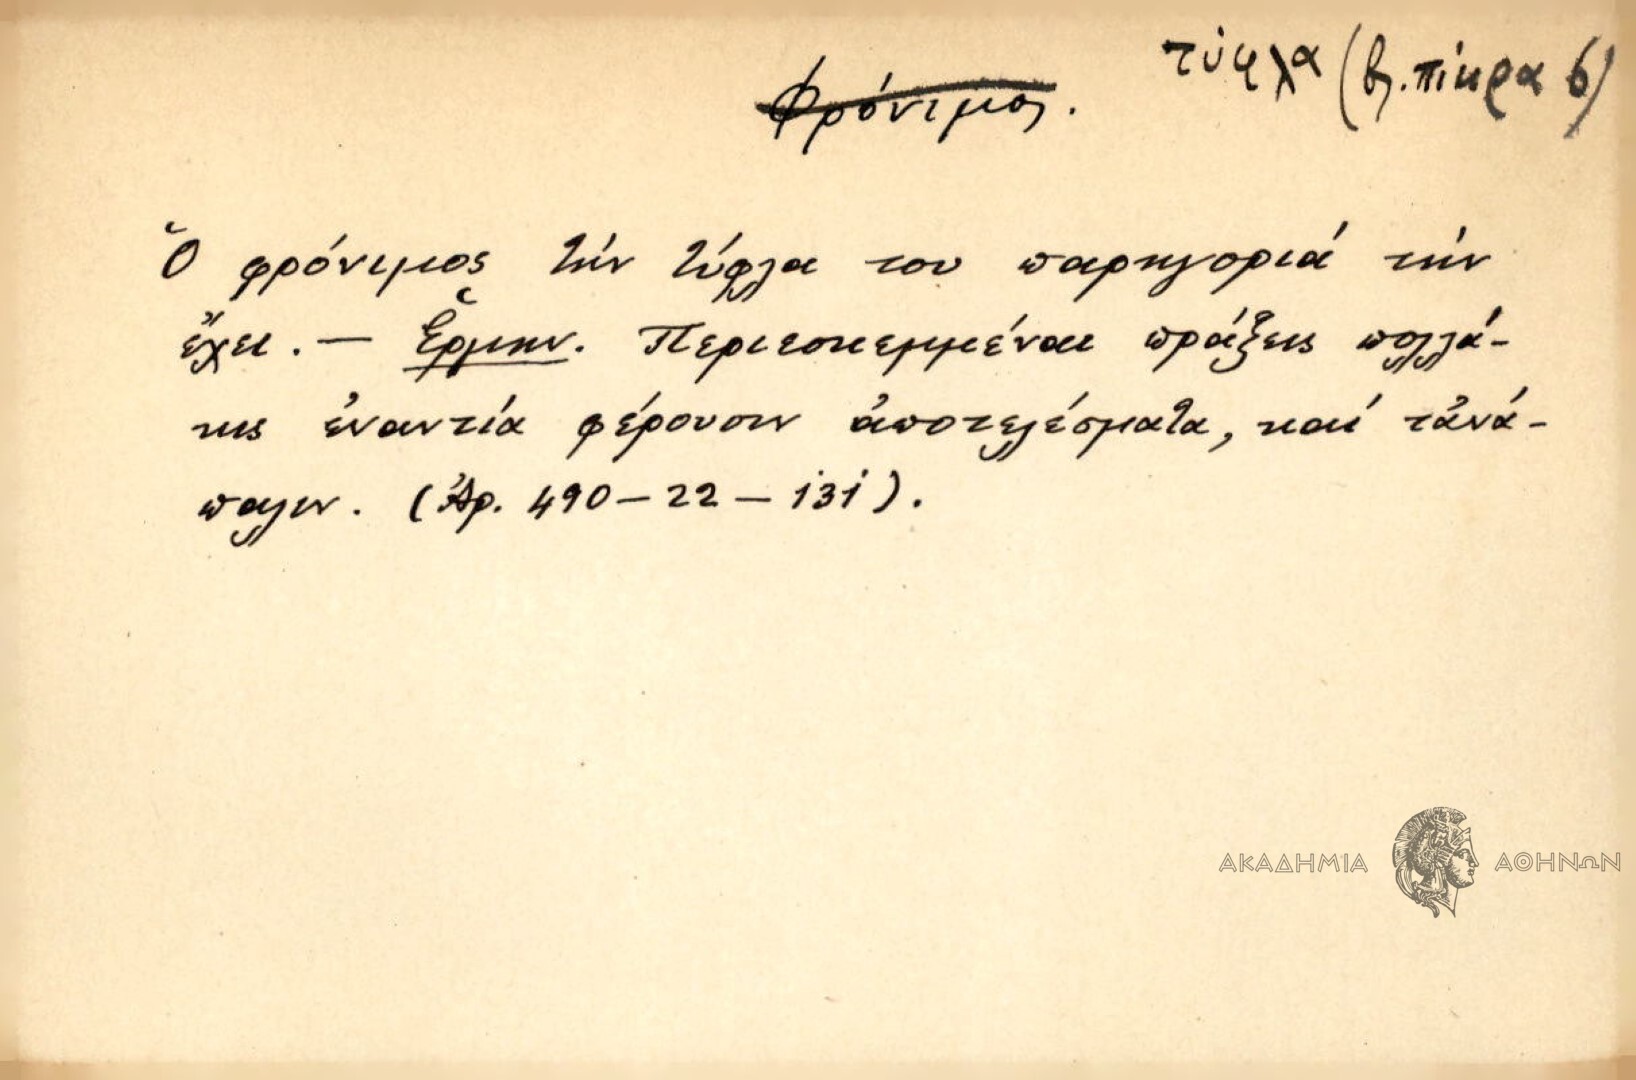 τύφλα (βλ. πίκρα 6)
Φρόνιμος.
Ὁ φρόνιμος τὴν τύφλα του παρηγοριά τὴν
ἔχει. – Ἑρμην. Περιεσκεμμέναι πράξεις πολλά-
κις ἐναντία φέρουσιν ἀποτελέσματα, καί τἀνά-
παλιν. (Ἀρ. 490 – 22 – 131).
ΑΚΑΔΗΜΙΑ ΑΘΗΝΩΝ